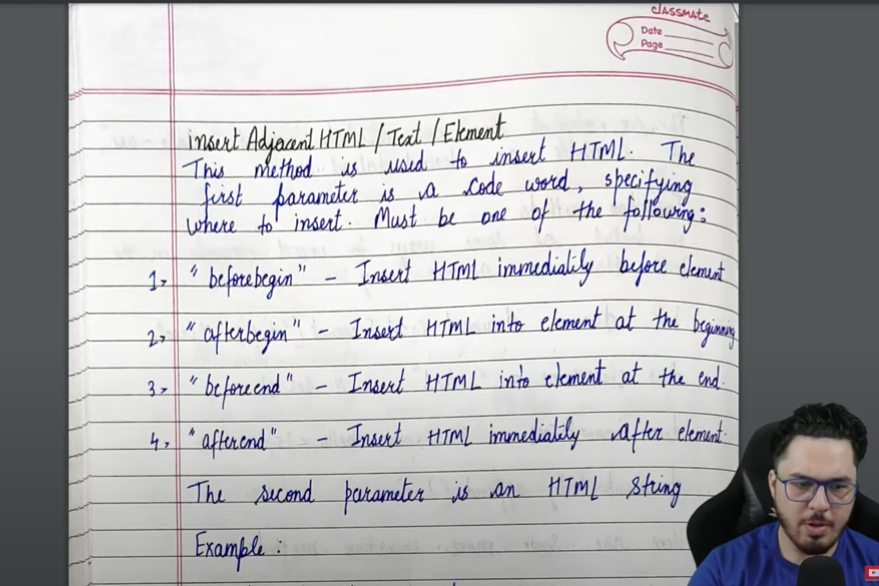 classmate
Date
Page
insert Adjacent HTML / Text / Element
This method is used to insert HTML. The
first parameter is a code word, specifying
where to insert. Must be one of the following:
1→ "beforebegin" - Insert HTML immediatily before element
2→ "afterbegin" - Insert HTML into element at the beginning
3→ "beforeend" - Insert HTML into element at the end.
4→ "afterend" - Insert HTML immediatily after element.
The second parameter is an HTML string
Example: